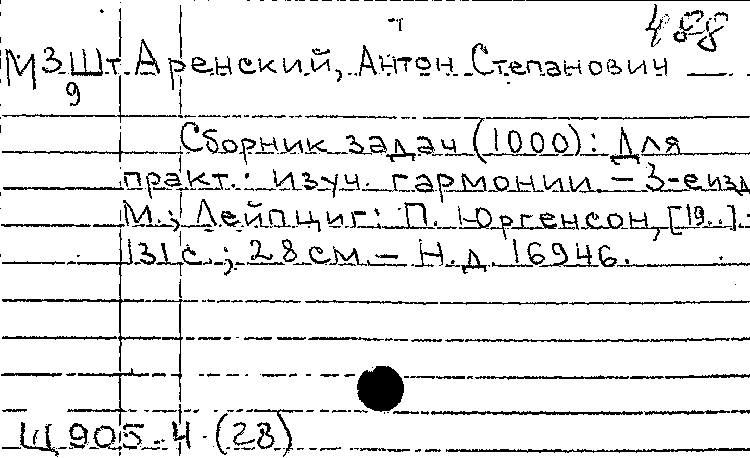 488
МЗ Шт Аренский, Антон Степанович
9
Сборник задач (1000): Для
практ.: изуч. гармонии. – 3-е изд
М.; Лейпциг: П. Юргенсон, [19..].
131 с.; 28 см. – Н.д. 16946.
Щ 905.4 (28)